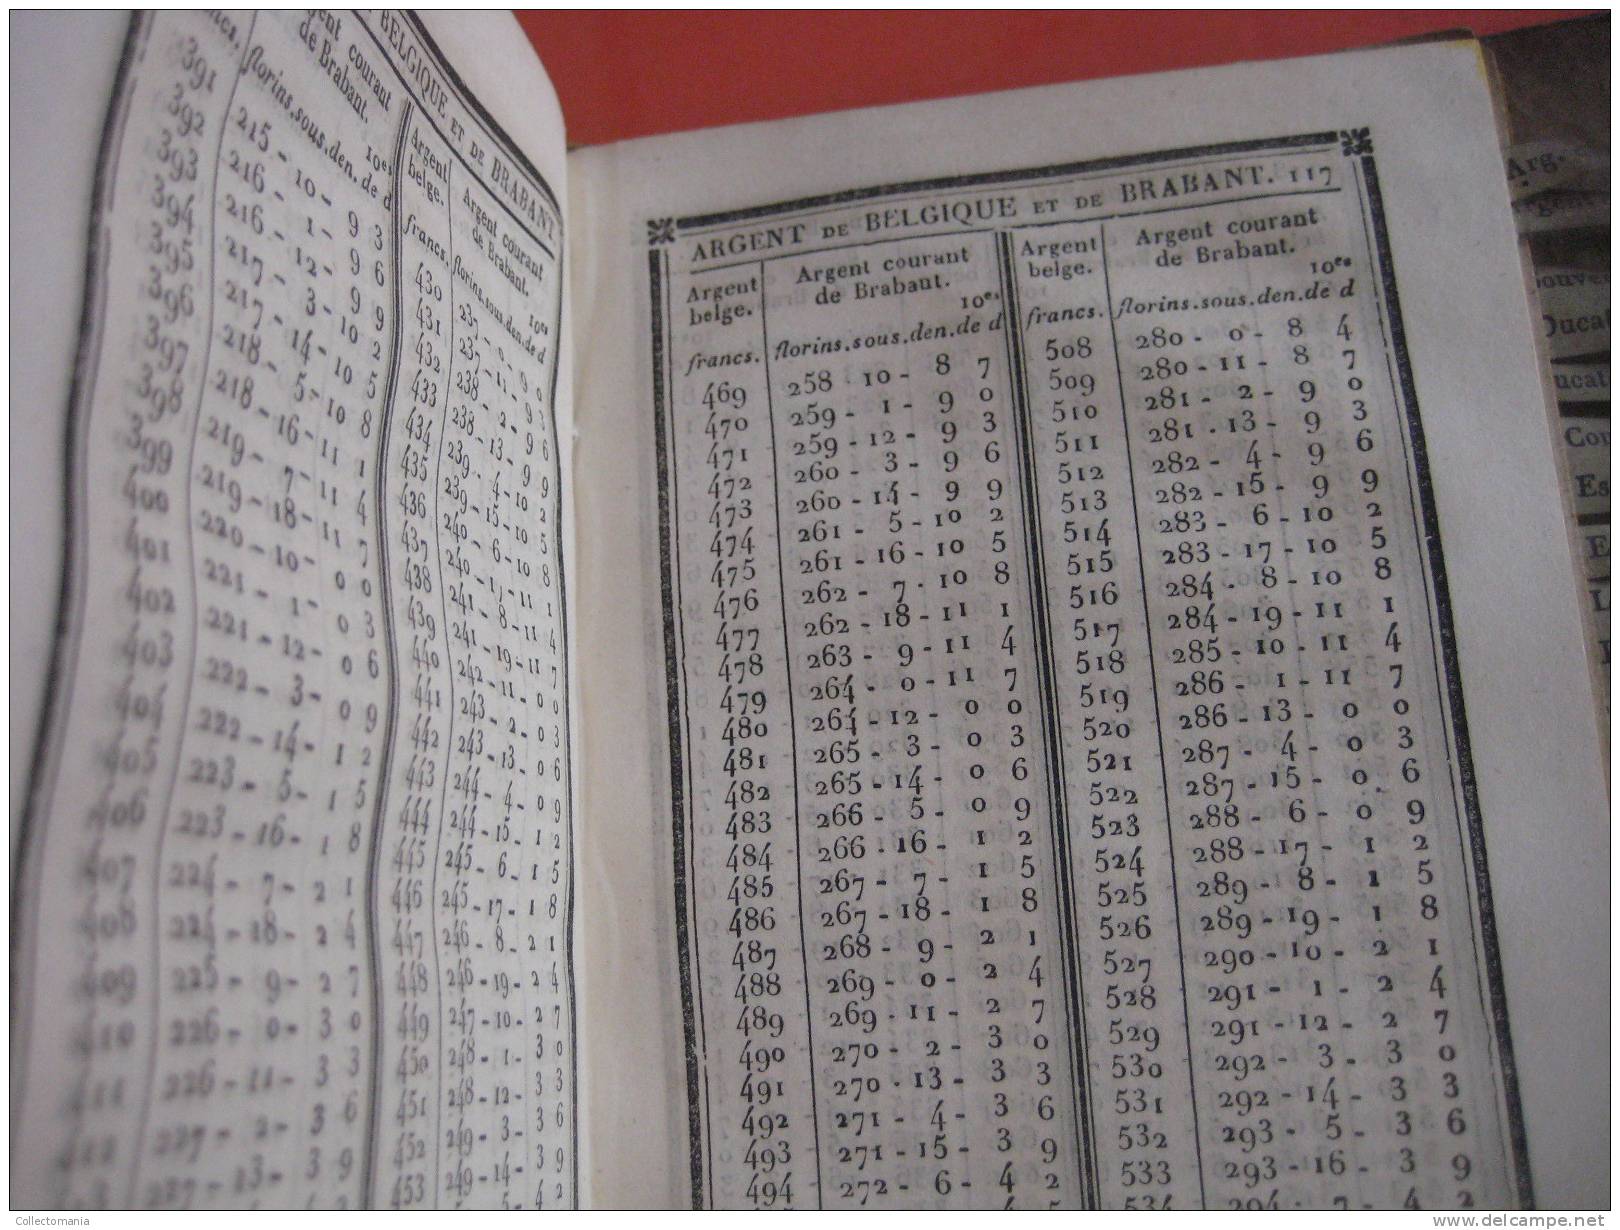 BELGIQUE ET DE BRABANT
Argent courant
de Brabant.
10es
florins.sous.den.de d
391 215-10-9 3
392 216-1-9 6
393 216-12-9 9
394 217-3-10 2
395 217-14-10 5
396 218-5-10 8
397 218-16-11 1
398 219-7-11 4
399 219-18-11 7
400 220-10-0 0
401 221-1-0 3
402 221-12-0 6
403 222-3-0 9
404 222-14-1 2
405 223-5-1 5
406 223-16-1 8
407 224-7-2 1
408 224-18-2 4
409 225-9-2 7
410 226-0-3 0
411 226-11-3 3
412 227-2-3 6
227-13-3 9
Argent
belge.
Argent courant
de Brabant.
10es
francs. florins.sous.den.de d
430 237-0-9 0
431 237-11-9 3
432 238-2-9 6
433 238-13-9 9
434 239-4-10 2
435 239-15-10 5
436 240-6-10 8
437 240-17-11 1
438 241-8-11 4
439 241-19-11 7
440 242-11-0 0
441 243-2-0 3
442 243-13-0 6
443 244-4-0 9
444 244-15-1 2
445 245-6-1 5
446 245-17-1 8
447 246-8-2 1
448 246-19-2 4
449 247-10-2 7
450 248-1-3 0
451 248-12-3 3
452 249-3-3 6
453 249-14-3 9
5-4 2
ARGENT DE BELGIQUE ET DE BRABANT. 117
Argent
belge.
Argent courant
de Brabant.
10es
francs. florins.sous.den.de d
469 258-10-8 7
470 259-1-9 0
471 259-12-9 3
472 260-3-9 6
473 260-14-9 9
474 261-5-10 2
475 261-16-10 5
476 262-7-10 8
477 262-18-11 1
478 263-9-11 4
479 264-0-11 7
480 264-12-0 0
481 265-3-0 3
482 265-14-0 6
483 266-5-0 9
484 266-16-1 2
485 267-7-1 5
486 267-18-1 8
487 268-9-2 1
488 269-0-2 4
489 269-11-2 7
490 270-2-3 0
491 270-13-3 3
492 271-4-3 6
493 271-15-3 9
494 272-6-4 2
Argent
belge.
Argent courant
de Brabant.
10es
francs. florins.sous.den.de d
508 280-0-8 4
509 280-11-8 7
510 281-2-9 0
511 281-13-9 3
512 282-4-9 6
513 282-15-9 9
514 283-6-10 2
515 283-17-10 5
516 284-8-10 8
517 284-19-11 1
518 285-10-11 4
519 286-1-11 7
520 286-13-0 0
521 287-4-0 3
522 287-15-0 6
523 288-6-0 9
524 288-17-1 2
525 289-8-1 5
526 289-19-1 8
527 290-10-2 1
528 291-1-2 4
529 291-12-2 7
530 292-3-3 0
531 292-14-3 3
532 293-5-3 6
533 293-16-3 9
534 294-7-4 2
Arg.
Collectomania
delcampe.net